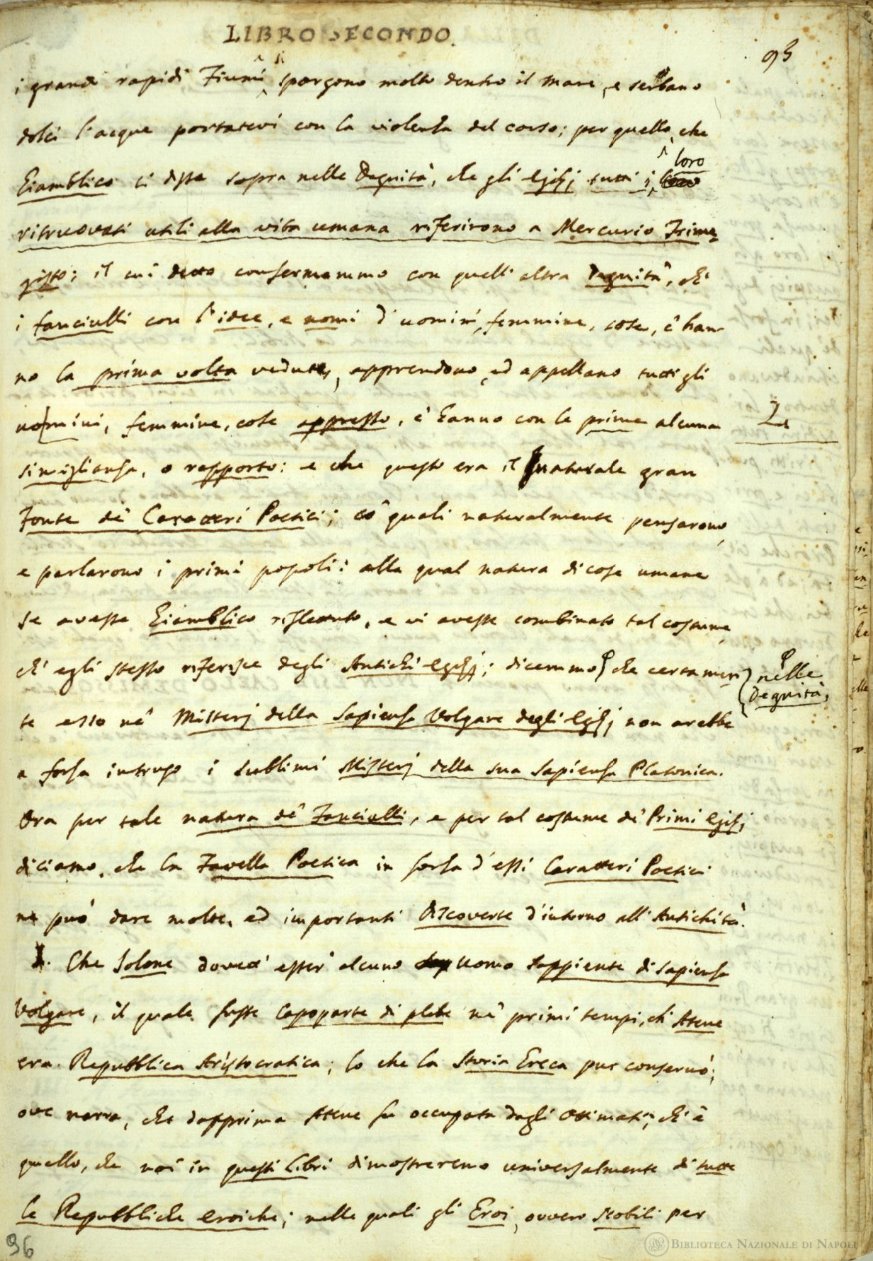 LIBRO SECONDO.
93
i grandi rapidi Fiumi spargono molto dentro il mare, e serbano
dolci l'acque portatevi con la violenza del corso; per quello, che
Giamblico ci disse sopra nelle Degnità, che gli Egizj tutti i loro
ritruovati utili alla vita umana riferirono a Mercurio Trime-
gisto; il cui detto confermammo con quell'altra Degnità, ch'
i fanciulli con l'idee, e nomi d'uomini, femmine, cose, c'han-
no la prima volta vedute, apprendono, ed appellano tutti gli
uomini, femmine, cose appresso, c'hanno con le prime alcuna
simiglianza, o rapporto: e che questo era il naturale gran
Fonte de' Caratteri Poetici; co' quali naturalmente pensarono,
e parlarono i primi popoli: alla qual natura di cose umane
se avesse Giamblico riflettuto, e vi avesse combinato tal costume,
ch'egli stesso riferisce degli Antichi Egizj; dicemmo che certamen-
nelle
Degnità,
te esso ne' Misterj della Sapienza Volgare degli Egizj non arebbe
a forza intruso i sublimi Misterj della sua Sapienza Platonica.
Ora per tale natura de' Fanciulli, e per tal costume de' Primi Egizj
diciamo, che la Favella Poetica in forza d'essi Caratteri Poetici
ne può dare molte, ed importanti Discoverte d'intorno all'Antichità.
I. Che Solone dovett' esser' alcuno uomo sappiente di sapienza
Volgare, il quale fusse Capoparte di plebe ne' primi tempi, ch'Atene
era Repubblica Aristocratica; lo che la Storia Greca pur conservò;
ove narra, che dapprima Atene fu occupata dagli Ottimati; ch'è
quello, che noi in questi Libri dimostreremo universalmente di tutte
le Repubbliche eroiche; nelle quali gli Eroi, ovvero Nobili per
96
BIBLIOTECA NAZIONALE DI NAPOLI